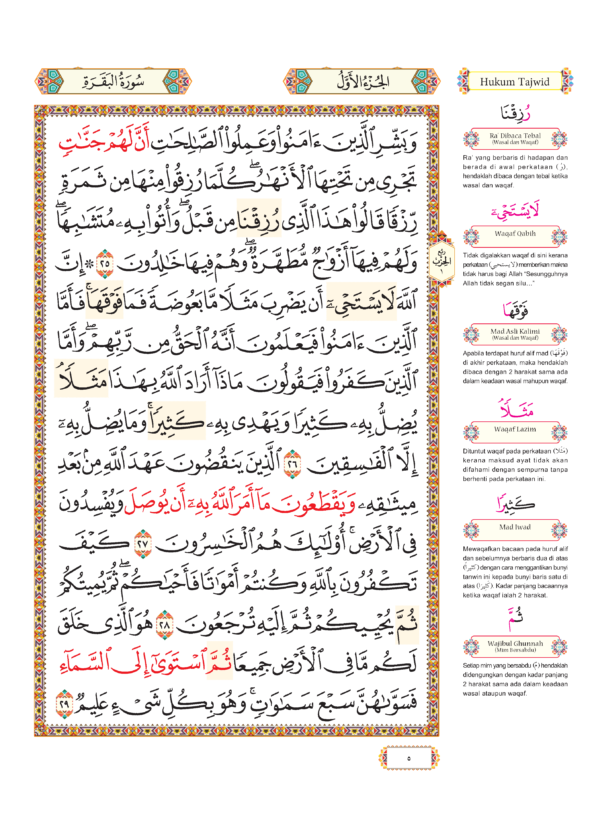 سُورَةُ الْبَقَرَةِ
الجُزْءُ الأَوَّلُ
وَبَشِّرِ ٱلَّذِينَ ءَامَنُوا۟ وَعَمِلُوا۟ ٱلصَّٰلِحَٰتِ أَنَّ لَهُمْ جَنَّٰتٍ
تَجْرِى مِن تَحْتِهَا ٱلْأَنْهَٰرُ ۖ كُلَّمَا رُزِقُوا۟ مِنْهَا مِن ثَمَرَةٍ
رِّزْقًا قَالُوا۟ هَٰذَا ٱلَّذِى رُزِقْنَا مِن قَبْلُ ۖ وَأُتُوا۟ بِهِۦ مُتَشَٰبِهًا ۖ
وَلَهُمْ فِيهَآ أَزْوَٰجٌ مُّطَهَّرَةٌ ۖ وَهُمْ فِيهَا خَٰلِدُونَ ٢٥ ۞ إِنَّ
ٱللَّهَ لَا يَسْتَحْىِۦٓ أَن يَضْرِبَ مَثَلًا مَّا بَعُوضَةً فَمَا فَوْقَهَا ۚ فَأَمَّا
ٱلَّذِينَ ءَامَنُوا۟ فَيَعْلَمُونَ أَنَّهُ ٱلْحَقُّ مِن رَّبِّهِمْ ۖ وَأَمَّا
ٱلَّذِينَ كَفَرُوا۟ فَيَقُولُونَ مَاذَآ أَرَادَ ٱللَّهُ بِهَٰذَا مَثَلًا ۘ
يُضِلُّ بِهِۦ كَثِيرًا وَيَهْدِى بِهِۦ كَثِيرًا ۚ وَمَا يُضِلُّ بِهِۦٓ
إِلَّا ٱلْفَٰسِقِينَ ٢٦ ٱلَّذِينَ يَنقُضُونَ عَهْدَ ٱللَّهِ مِنۢ بَعْدِ
مِيثَٰقِهِۦ وَيَقْطَعُونَ مَآ أَمَرَ ٱللَّهُ بِهِۦٓ أَن يُوصَلَ وَيُفْسِدُونَ
فِى ٱلْأَرْضِ ۚ أُو۟لَٰٓئِكَ هُمُ ٱلْخَٰسِرُونَ ٢٧ كَيْفَ
تَكْفُرُونَ بِٱللَّهِ وَكُنتُمْ أَمْوَٰتًا فَأَحْيَٰكُمْ ۖ ثُمَّ يُمِيتُكُمْ
ثُمَّ يُحْيِيكُمْ ثُمَّ إِلَيْهِ تُرْجَعُونَ ٢٨ هُوَ ٱلَّذِى خَلَقَ
لَكُم مَّا فِى ٱلْأَرْضِ جَمِيعًا ثُمَّ ٱسْتَوَىٰٓ إِلَى ٱلسَّمَآءِ
فَسَوَّىٰهُنَّ سَبْعَ سَمَٰوَٰتٍ ۚ وَهُوَ بِكُلِّ شَىْءٍ عَلِيمٌ ٢٩
ربع
الحزب
١
٥
Hukum Tajwid
رُزِقْنَا
Ra' Dibaca Tebal
(Wasal dan Waqaf)
Ra' yang berbaris di hadapan dan
berada di awal perkataan (رُ),
hendaklah dibaca dengan tebal ketika
wasal dan waqaf.
لَا يَسْتَحْىِۦٓ
Waqaf Qabih
Tidak digalakkan waqaf di sini kerana
perkataan (لا يستحيى) memberikan makna
tidak harus bagi Allah "Sesungguhnya
Allah tidak segan silu..."
فَوْقَهَا
Mad Asli Kalimi
(Wasal dan Waqaf)
Apabila terdapat huruf alif mad (فَوْقَهَا)
di akhir perkataan, maka hendaklah
dibaca dengan 2 harakat sama ada
dalam keadaan wasal mahupun waqaf.
مَثَلًا ۘ
Waqaf Lazim
Dituntut waqaf pada perkataan (مَثَلًا)
kerana maksud ayat tidak akan
difahami dengan sempurna tanpa
berhenti pada perkataan ini.
كَثِيرًا
Mad Iwad
Mewaqafkan bacaan pada huruf alif
dan sebelumnya berbaris dua di atas
(كَثِيرًا) dengan cara menggantikan bunyi
tanwin ini kepada bunyi baris satu di
atas (كَثِيرَا). Kadar panjang bacaannya
ketika waqaf ialah 2 harakat.
ثُمَّ
Wajibul Ghunnah
(Mim Bersabdu)
Setiap mim yang bersabdu (مّ) hendaklah
didengungkan dengan kadar panjang
2 harakat sama ada dalam keadaan
wasal ataupun waqaf.